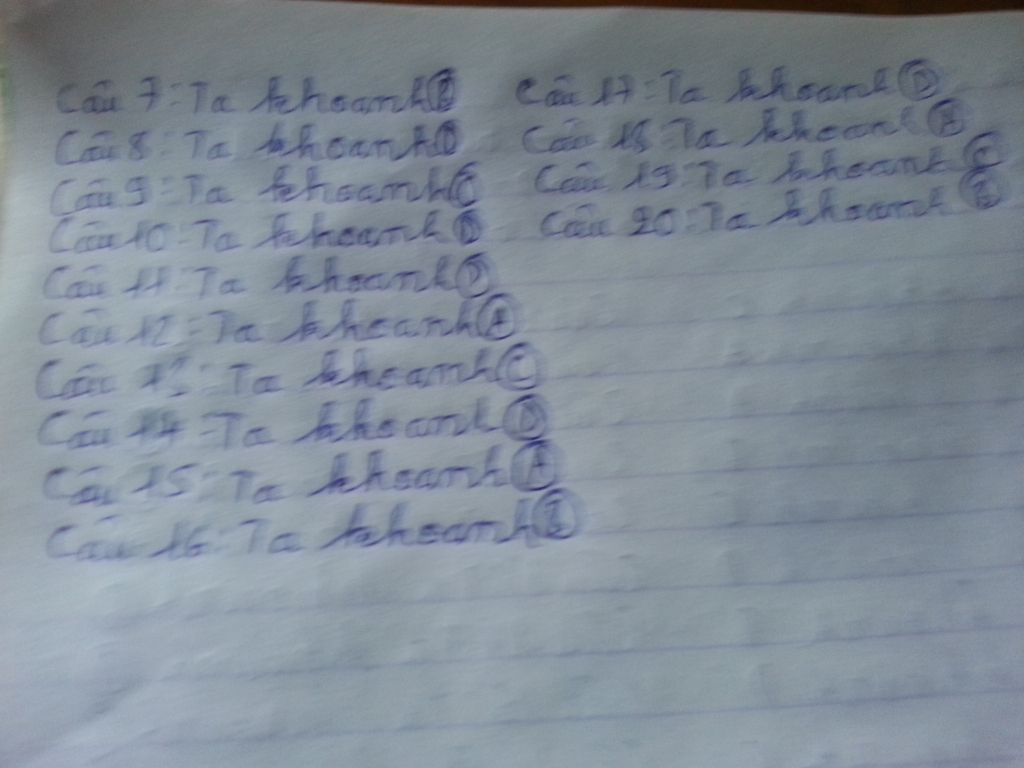 Câu 7: Ta khoanh B
Câu 8: Ta khoanh D
Câu 9: Ta khoanh C
Câu 10: Ta khoanh D
Câu 11: Ta khoanh D
Câu 12: Ta khoanh A
Câu 13: Ta khoanh C
Câu 14: Ta khoanh D
Câu 15: Ta khoanh A
Câu 16: Ta khoanh B
Câu 17: Ta khoanh D
Câu 18: Ta khoanh
Câu 19: Ta khoanh C
Câu 20: Ta khoanh B